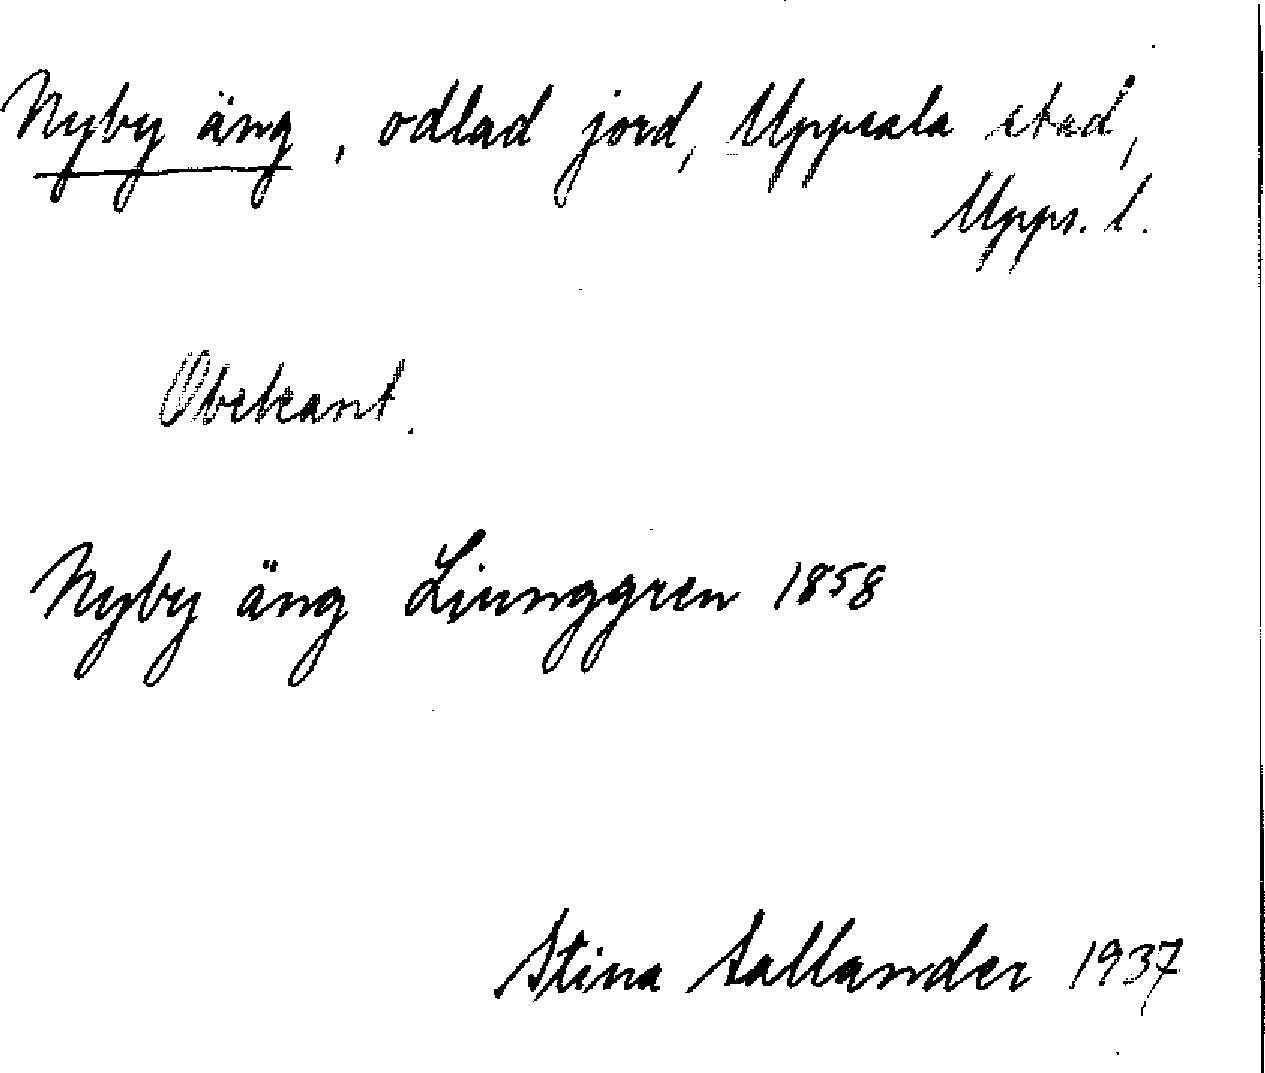 Nyby äng, odlad jord, Uppsala stad,
Upps. l.
Obekant.
Nyby äng Liunggren 1858
Stina Sallander 1937